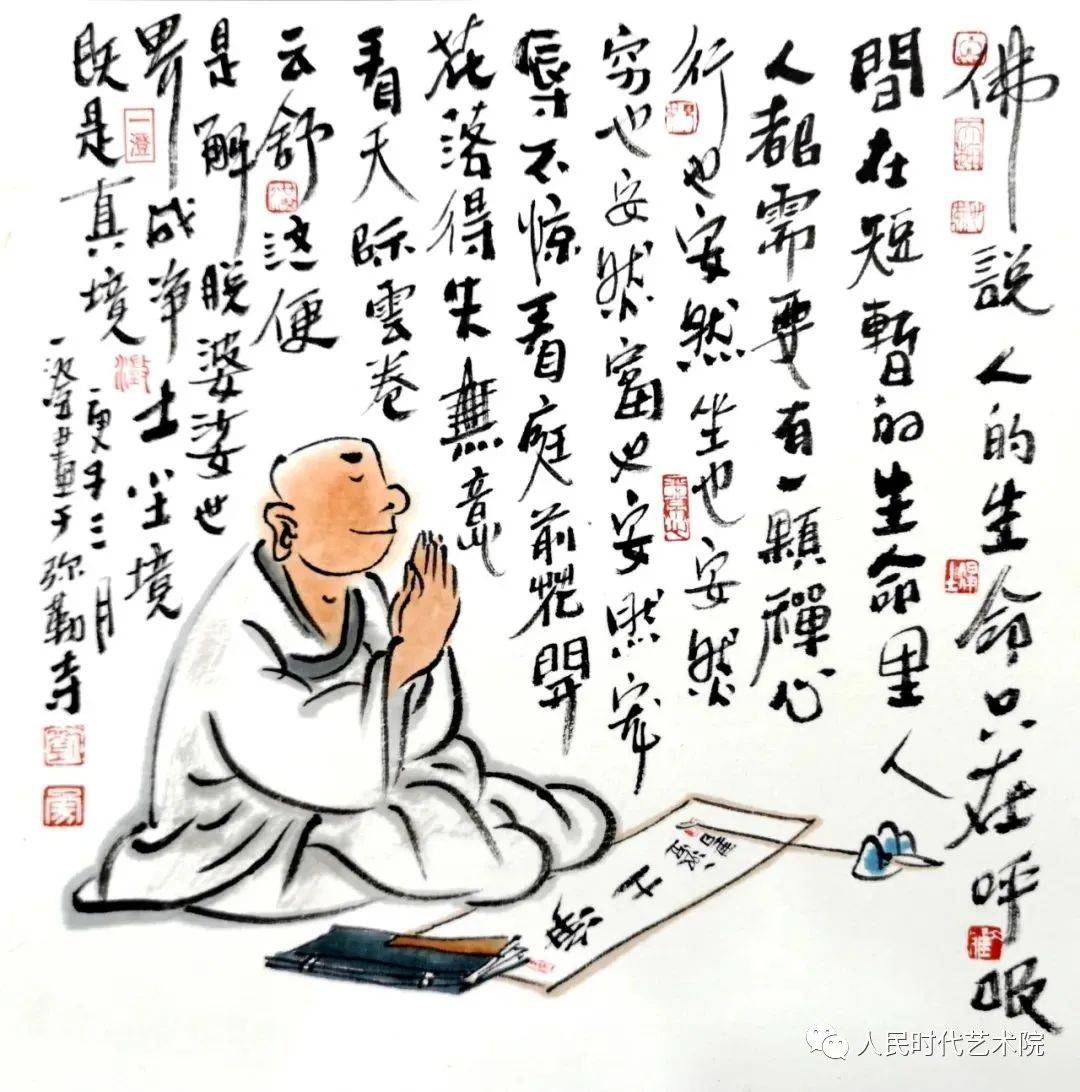 佛說人的生命只在呼吸
間在短暫的生命里人
人都需要有一顆禪心
行也安然坐也安然
穷也安然富也安然寵
辱不惊看庭前花開
花落得失無意
看天际雲卷
云舒这便
是解脫婆娑世
界成净土尘境
既是真境
庚子三月
一澄畫于弥勒寺
一澄
人民时代艺术院